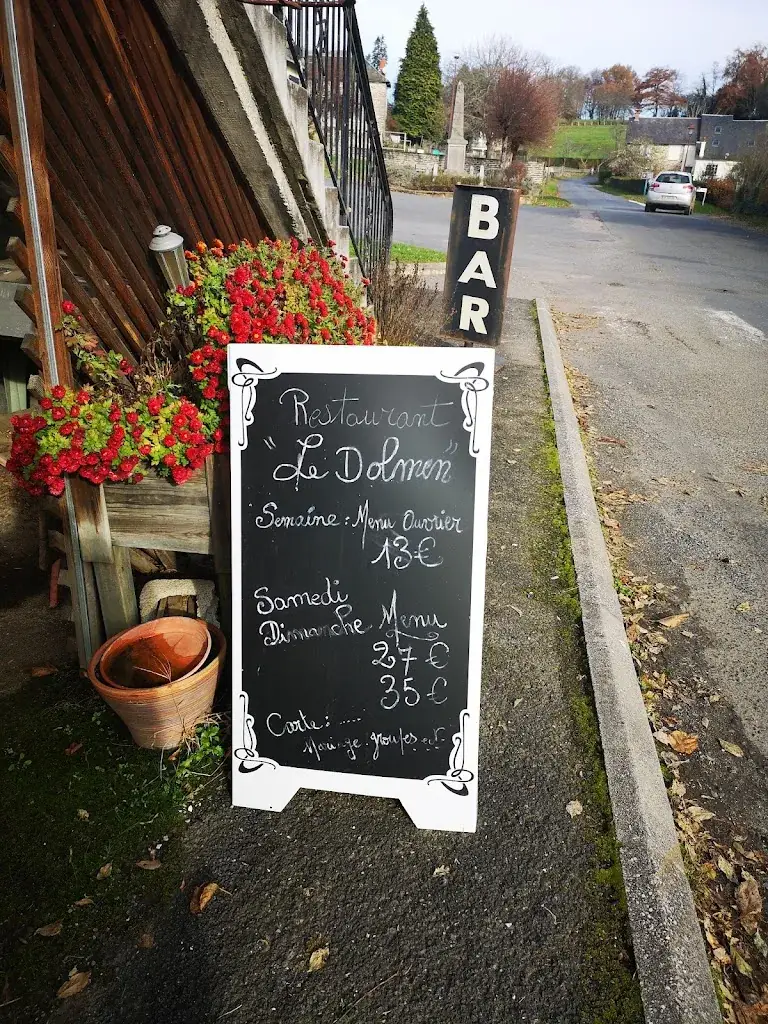 BAR
Restaurant
"Le Dolmen"
Semaine : Menu Ouvrier
13€
Samedi
Dimanche Menu
27 €
35 €
Carte : .....
Mariage groupes etc